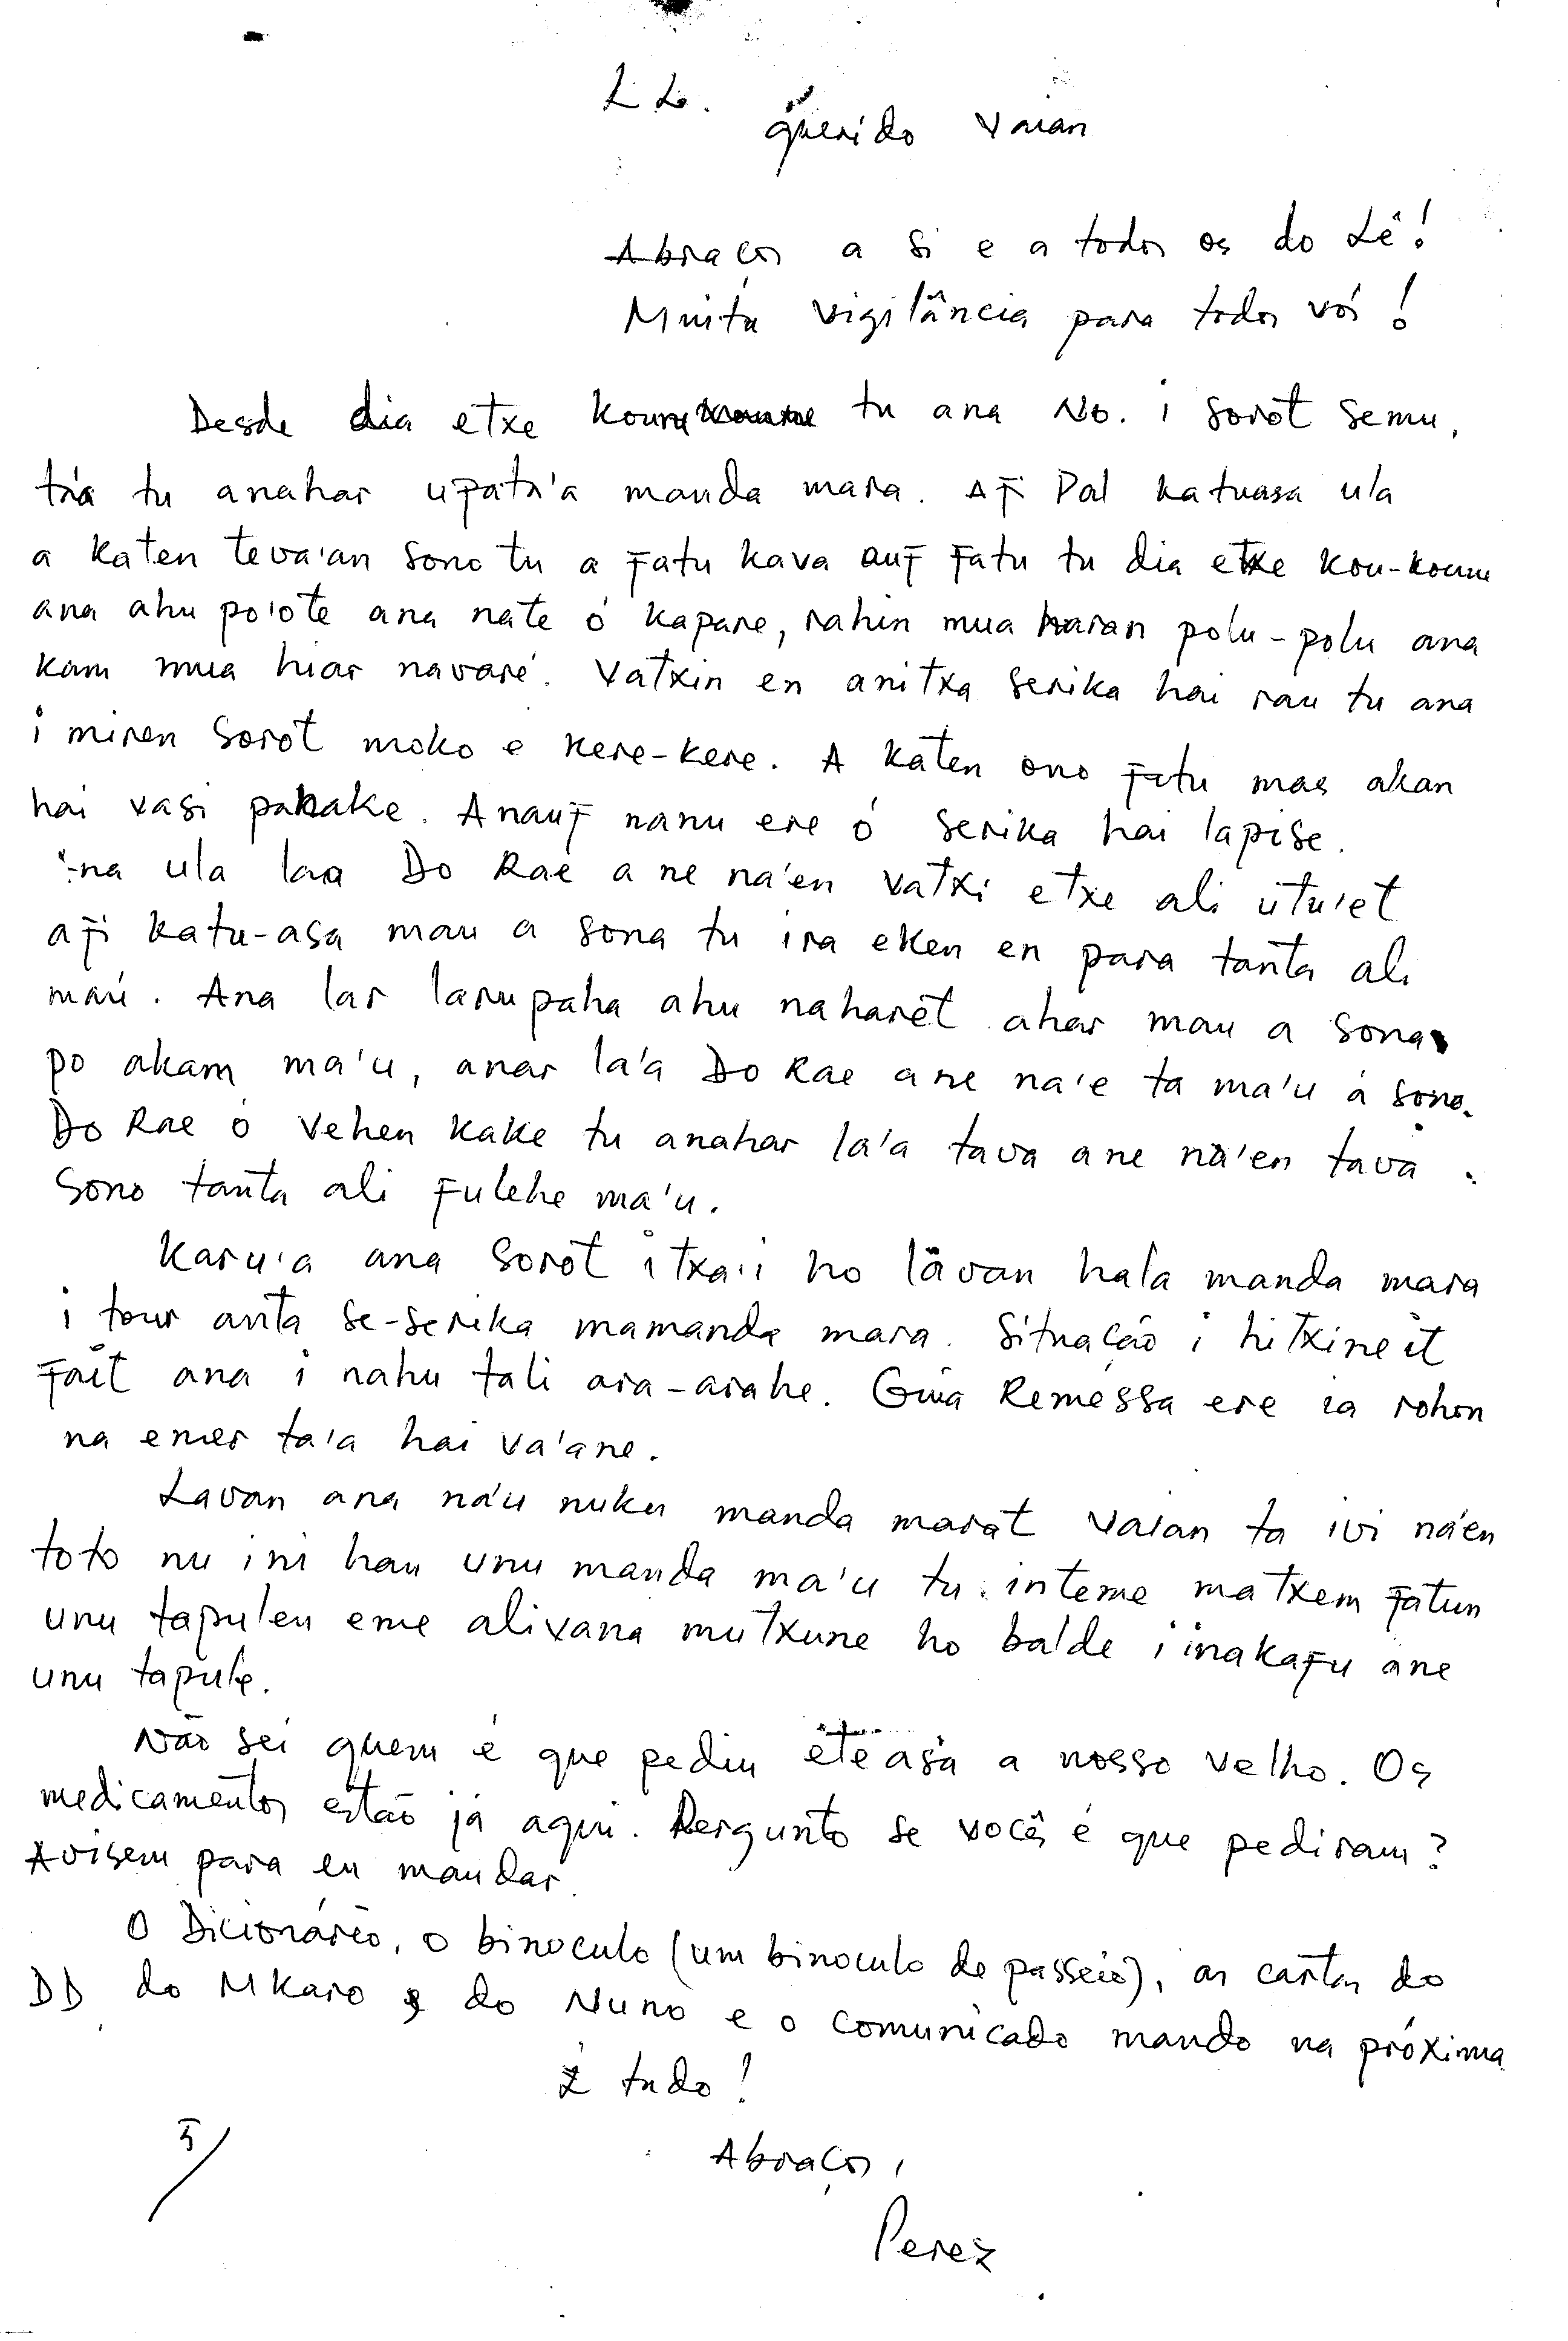 L L.
querido Vaian
Abraços a si e a todos os do Lê!
Muita vigilância para todos vós!
Desde dia etxe koune tu ana No. i sorot semu,
tá'a tu anahar upata'a manda mara. Afi Pal katuasa ula
a katen teva'an sono tu a fatu kava auf fatu tu dia etxe kou-koune
ana ahu po'ote ana nate ó kapare, rahin mua haran polu-polu ana
kam mua hiar navaré. Vatxin en anitxa serika hai rau tu ana
i miren sorot moko e kere-kere. A katen ono fatu mas akan
hai vasi pahake. Anauf nanu ere ó serika hai lapise.
ula laa Do Rae a ne na'en vatxi etxe ali utu'et
afi katu-asa mau a sona tu ira eken en para tanta ali
maú. Ana lar larupaha ahu naharet ahar mau a sona
po akam ma'u, anar la'a Do Rae ane na'e ta ma'u á sono.
Do Rae ó vehen kake tu anahar la'a tava ane na'en tava.
Sono tanta ali fulehe ma'u.
Karu'a ana sorot itxa'i ho lavan hala manda mara
i tour anta se-serika mamanda mara. Situação i hitxine it
fait ana i nahu tali ara-arahe. Guia Remessa ere ia rohon
na emer ta'a hai va'ane.
Lavan ana na'u nuku manda marat Vaian ta ivi na'en
toto nu ini hau unu manda ma'u tu inteme matxem fatun
unu tapulen eme alivana mutxune ho balde i inakafu ane
unu tapule.
Não sei quem é que pediu eteasa a nosso velho. Os
medicamentos estão já aqui. Pergunto se vocês é que pediram?
Avisem para eu mandar.
O Dicionário, o binoculo (um binoculo de passeio), as cartas do
DD do Mkaro e do Nuno e o comunicado mando na próxima
É tudo!
5/
Abraços,
Perez